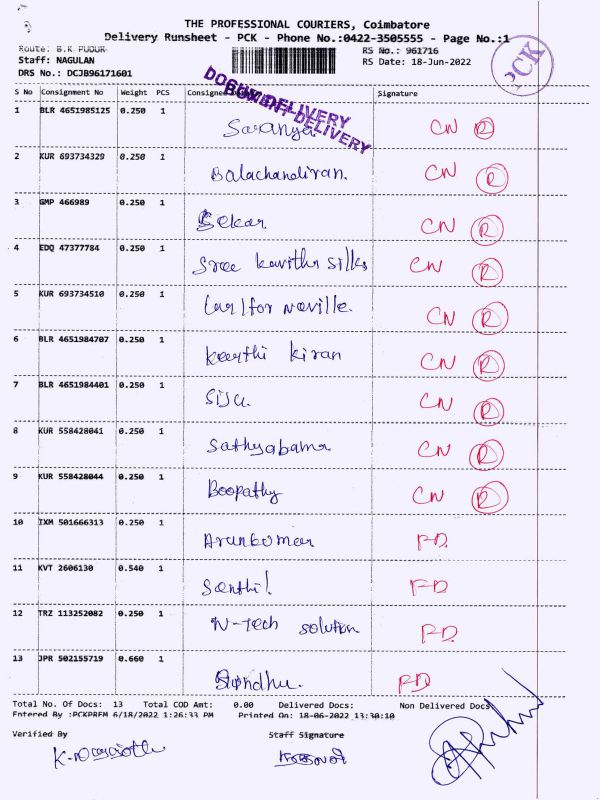 THE PROFESSIONAL COURIERS, Coimbatore
Delivery Runsheet - PCK - Phone No.:0422-3505555 - Page No.:1
Route: B.K PUDUR
RS No.: 961716
Staff: NAGULAN
RS Date: 18-Jun-2022
DRS No.: DCJB96171601
PCK
DOBUWIN DELIVERY
DELIVERY
S No Consignment No Weight PCS Consignee Signature
1 BLR 4651985125 0.250 1 Saranya CN R
2 KUR 693734329 0.250 1 Balachandiran. CN R
3 GMP 466989 0.250 1 Sekar. CN R
4 EDQ 47377784 0.250 1 Sree kavitha silks CN R
5 KUR 693734510 0.250 1 CN R
6 BLR 4651984707 0.250 1 keerthi kiran CN R
7 BLR 4651984401 0.250 1 Siju. CN R
8 KUR 558428041 0.250 1 Sathyabama CN R
9 KUR 558428044 0.250 1 Boopathy CN R
10 IXM 501666313 0.250 1 Arunkumar FD.
11 KVT 2606130 0.540 1 Senthil FD
12 TRZ 113252082 0.250 1 N-Tech solution FD.
13 JPR 502155719 0.660 1 Sindhu. FD
Total No. Of Docs: 13 Total COD Amt: 0.00 Delivered Docs: Non Delivered Docs:
Entered By :PCKPREM 6/18/2022 1:26:33 PM Printed On: 18-06-2022 13:30:10
Verified By Staff Signature